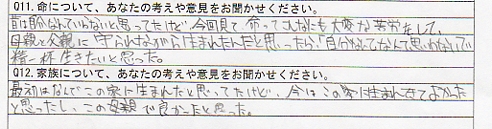 Q11. 命について、あなたの考えや意見をお聞かせください。
前は自分なんていらないと思ってたけど、今回見て命ってこんなにも大変な苦労をして、
母親と父親に守られながら生まれたんだと思ったら「自分なんて」なんて思わないで
精一杯生きたいと思った。
Q12. 家族について、あなたの考えや意見をお聞かせください。
最初はなんでこの家に生まれたと思ってたけど、今はこの家に生まれてきてよかった
と思ったし、この母親で良かったと思った。